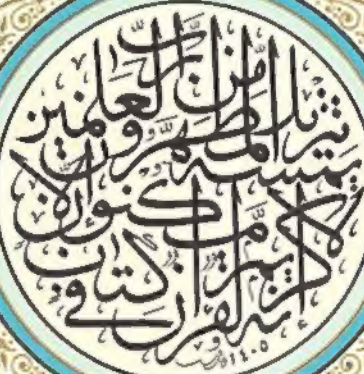 إنه لقرآن كريم في
كتاب مكنون لا
يمسه إلا المطهرون
تنزيل من رب العلمين
١٤٠٥